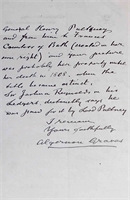 General Henry Pulteney,
and from him to Frances
Countess of Bath (created in her
own right) and your picture
was probably her property until
her death in 1808, when the
title became extinct.
Sir Joshua Reynolds in his
Ledgers decidedly says he
was paid for it by Lord Pulteney
I remain
Yours faithfully
Algernon Graves